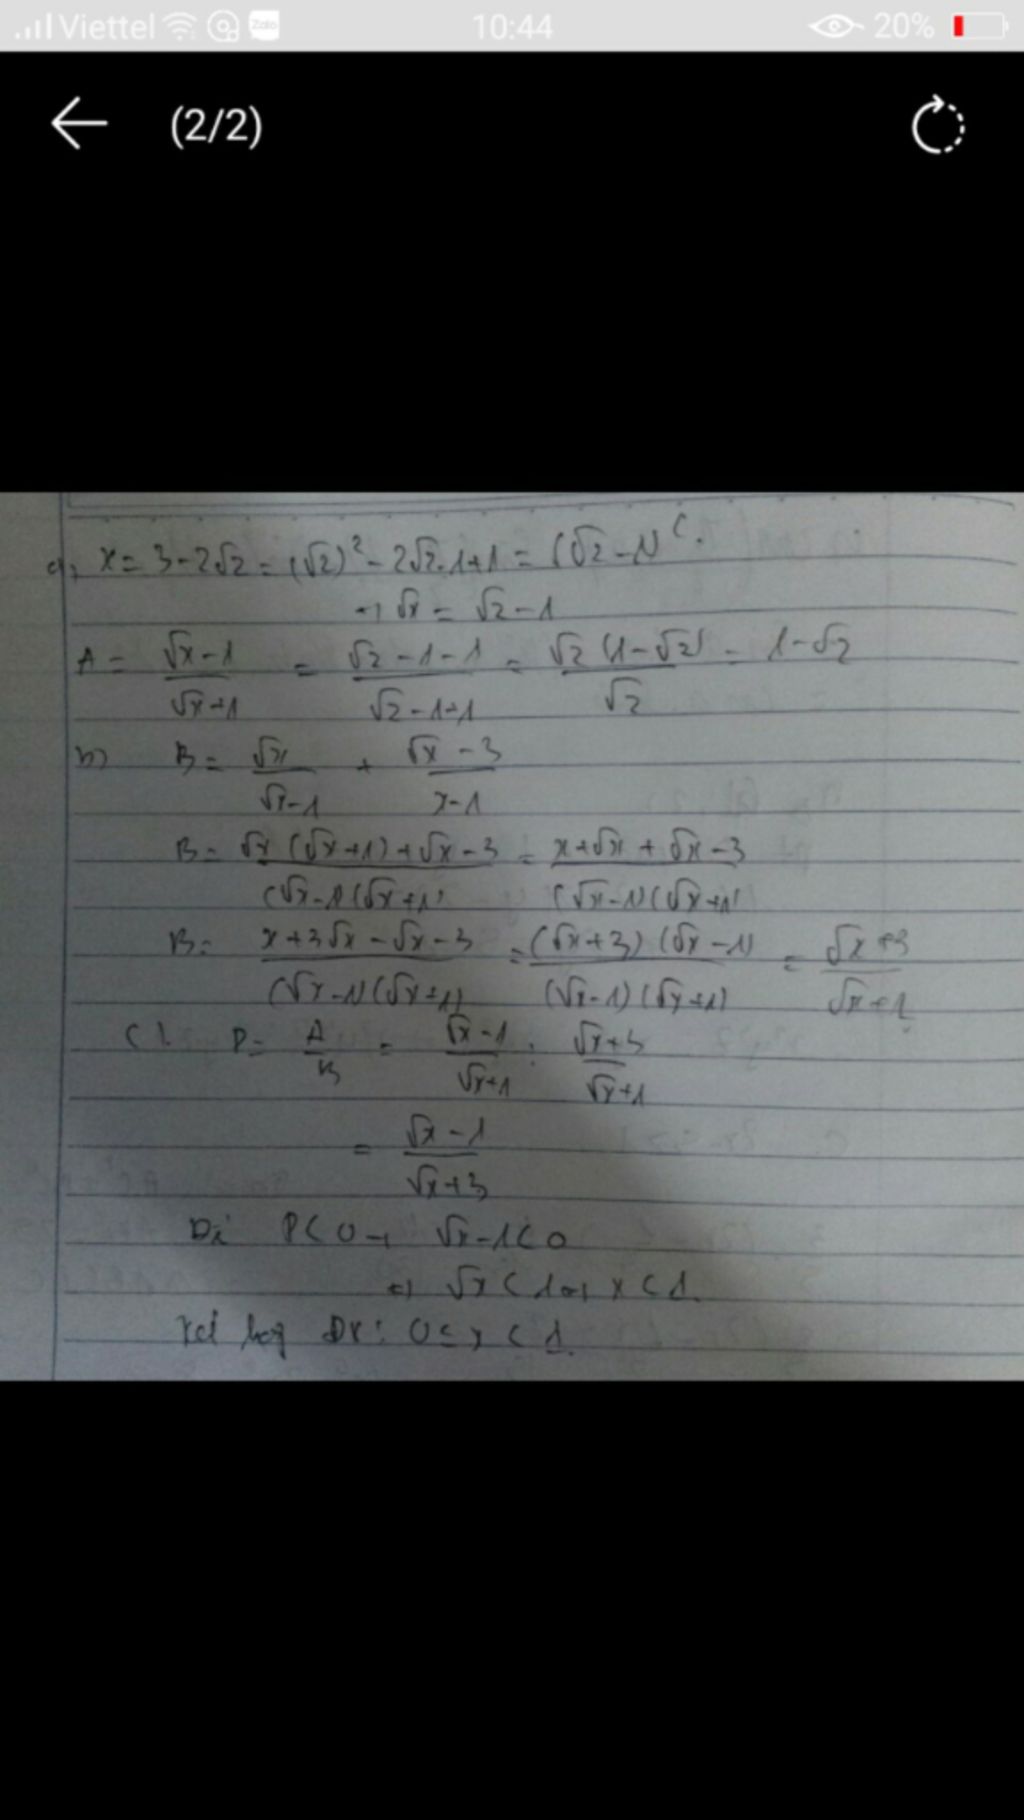 Viettel Zalo 10:44 20%
(2/2)
a, x = 3 - 2√2 = (√2)² - 2√2.1+1 = (√2 - 1)².
→ √x = √2 - 1
A = (√x - 1)/(√x+1) = (√2 - 1 - 1)/(√2 - 1+1) = (√2 (1 - √2))/√2 = 1 - √2
b) B = √x/(√x - 1) + (√x - 3)/(x - 1)
B = (√x (√x + 1) + √x - 3)/((√x - 1)(√x + 1)) = (x + √x + √x - 3)/((√x - 1)(√x + 1))
B = (x + 3√x - √x - 3)/((√x - 1)(√x + 1)) = ((√x + 3)(√x - 1))/((√x - 1)(√x + 1)) = (√x + 3)/(√x + 1)
c). P = A/B = (√x - 1)/(√x + 1) : (√x + 3)/(√x + 1)
= (√x - 1)/(√x + 3)
P < 0 → √x - 1 < 0
↔ √x < 1 ↔ x < 1.
hợp ĐK: 0 ≤ x < 1.